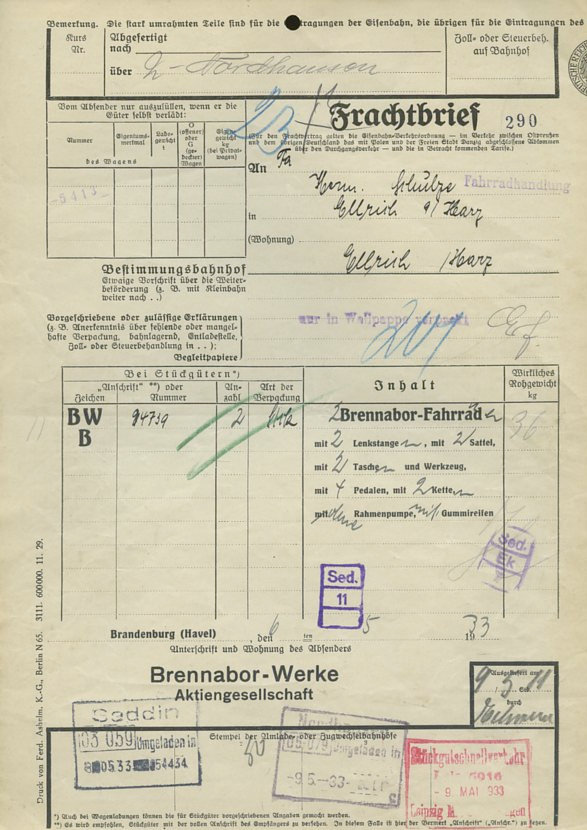 Bemerkung. Die stark umrahmten Teile sind für die Eintragungen der Eisenbahn, die übrigen für die Eintragungen des
Kurs Nr.
Abgefertigt
nach
über Nordhausen
Zoll- oder Steuerbeh. auf Bahnhof
Vom Absender nur auszufüllen, wenn er die Güter selbst verlädt:
Nummer
Eigentums-merkmal
Lade-gewicht t
O (offener) oder G (ge-deckter) Wagen
Eigen-gewicht kg (bei Privat-wagen)
des Wagens
5413
Frachtbrief
290
(Für den Frachtvertrag gelten die Eisenbahn-Verkehrsordnung — im Verkehr zwischen Ostpreußen
und dem übrigen Deutschland das mit Polen und der Freien Stadt Danzig abgeschlossene Abkommen
über den Durchgangsverkehr — und die in Betracht kommenden Tarife.)
An Fa
Herm. Schulze Fahrradhandlung
in Ellrich a/Harz
(Wohnung)
Ellrich /Harz
Bestimmungsbahnhof
Etwaige Vorschrift über die Weiter-
beförderung (z. B. mit Kleinbahn
weiter nach . .)
Vorgeschriebene oder zulässige Erklärungen
(z. B. Anerkenntnis über fehlende oder mangel-
hafte Verpackung, bahnlagernd, Entladestelle,
Zoll- oder Steuerbehandlung in . . );
Begleitpapiere
nur in Wellpappe verpackt
Bei Stückgütern*)
„Anschrift" **) oder
Zeichen
Nummer
An-zahl
Art der Verpackung
Inhalt
Wirkliches Rohgewicht kg
BW
B
94739
2
2 Brennabor-Fahrräder
36
mit 2 Lenkstangen, mit 2 Sattel,
mit 2 Taschen und Werkzeug,
mit 4 Pedalen, mit 2 Ketten
ohne Rahmenpumpe, mit Gummireifen
Sed.
Ek
Sed.
11
Brandenburg (Havel), den 6 ten 5 1933
Unterschrift und Wohnung des Absenders
Brennabor-Werke
Aktiengesellschaft
Ausgeliefert am
9/5 11
durch
Seddin
03 059 Umgeladen in
05.33 54434
Stempel der Anlade- oder Zugwechselbahnhöfe
05 079 Umgeladen in
-9.5.-33-
Stückgutschnellverkehr
- 9. MAI 1933
Leipzig
*) Auch bei Wagenladungen können die für Stückgüter vorgeschriebenen Angaben gemacht werden.
**) Es wird empfohlen, Stückgüter mit der vollen Anschrift des Empfängers zu versehen. In diesem Falle ist hier der Vermerk „Anschrift" („Anschr.") zu
Druck von Ferd. Ashelm, K.-G., Berlin N 65. 3111. 600000. 11. 29.